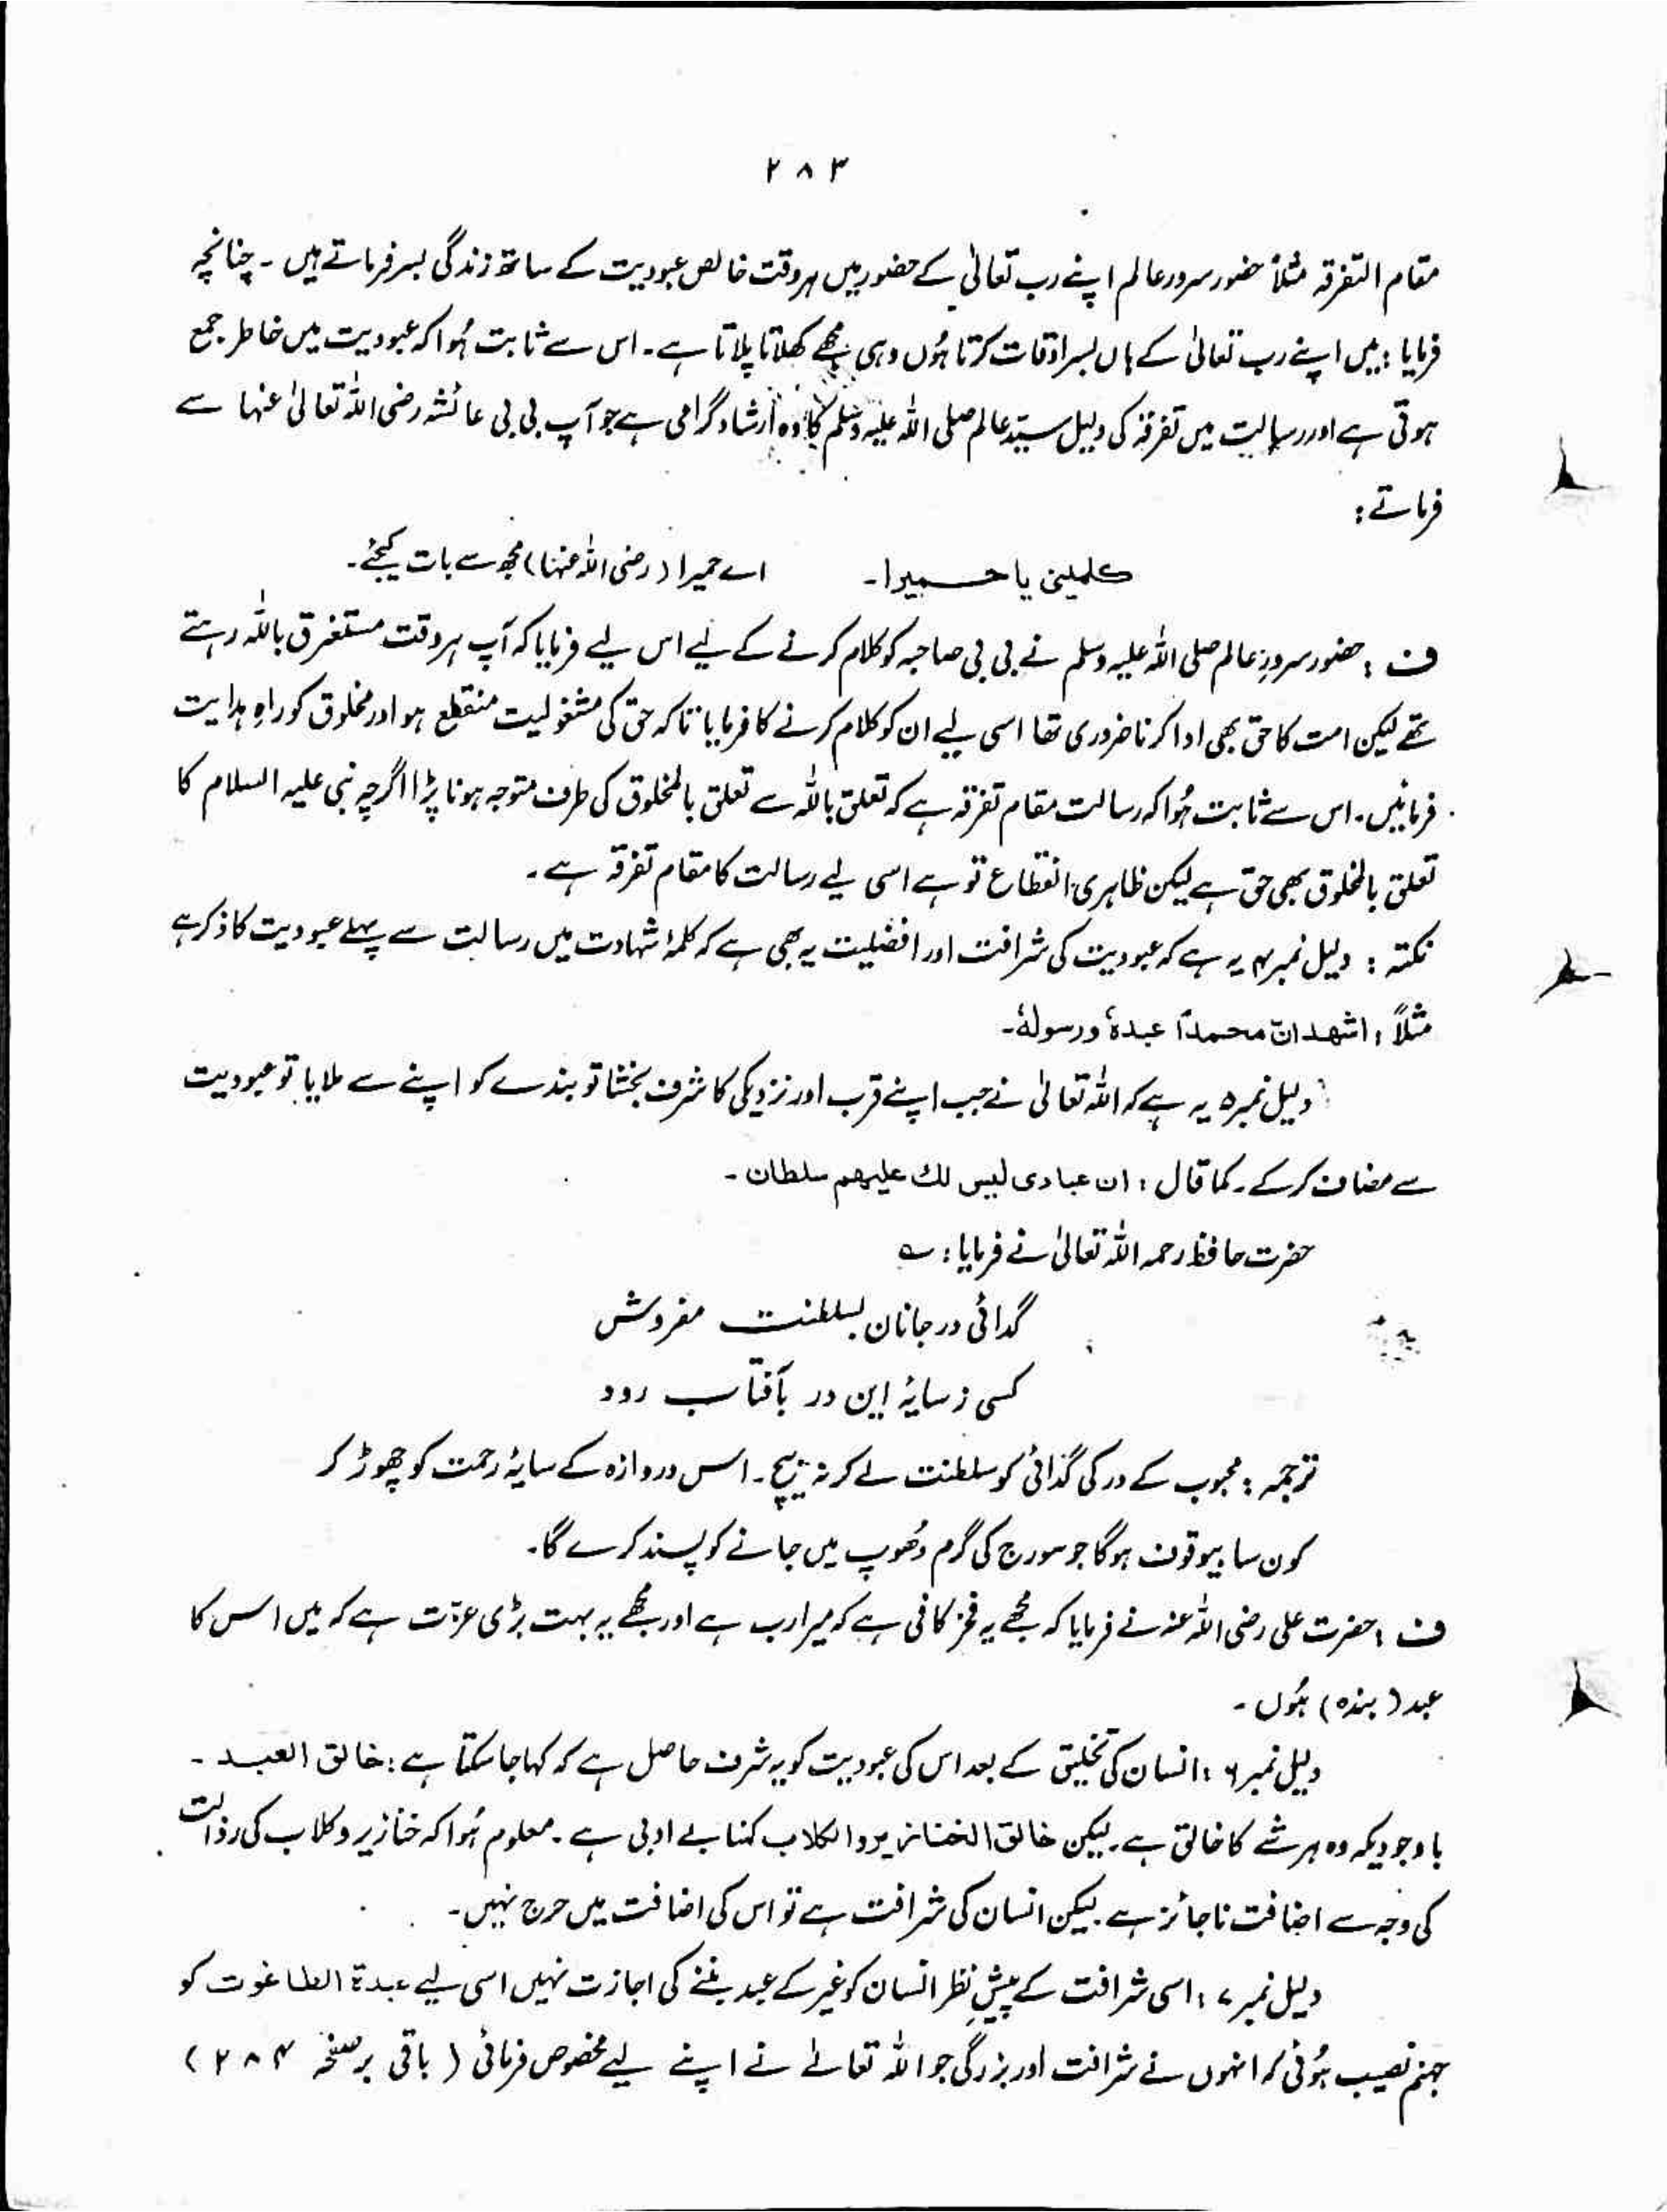 ۲۸۳
مقام التفرقہ مثلاً حضور سرور عالم اپنے رب تعالیٰ کے حضور میں ہر وقت خالص عبودیت کے ساتھ زندگی بسر فرماتے ہیں ۔ چنانچہ
فرمایا : میں اپنے رب تعالیٰ کے ہاں بسر اوقات کرتا ہُوں وہی مجھے کھلاتا پلاتا ہے ۔ اس سے ثابت ہُوا کہ عبودیت میں خاطر جمع
ہوتی ہے اور رسالت میں تفرقہ کی دلیل سیّد عالم صلی اللہ علیہ وسلم کا وہ ارشاد گرامی ہے جو آپ بی بی عائشہ رضی اللہ تعالیٰ عنہا سے
فرماتے :
کلمینی یا حمیرا ۔ اے حمیرا ( رضی اللہ عنہا ) مجھ سے بات کیجئے ۔
ف : حضور سرورِ عالم صلی اللہ علیہ وسلم نے بی بی صاحبہ کو کلام کرنے کے لیے اس لیے فرمایا کہ آپ ہر وقت مستغرق باللہ رہتے
تھے لیکن امت کا حق بھی ادا کرنا ضروری تھا اسی لیے ان کو کلام کرنے کا فرمایا تاکہ حق کی مشغولیت منقطع ہو اور مخلوق کو راہِ ہدایت
فرمائیں ۔ اس سے ثابت ہُوا کہ رسالت مقام تفرقہ ہے کہ تعلق باللہ سے تعلق بالمخلوق کی طرف متوجہ ہونا پڑا اگرچہ نبی علیہ السلام کا
تعلق بالمخلوق بھی حق ہے لیکن ظاہری انقطاع تو ہے اسی لیے رسالت کا مقام تفرقہ ہے ۔
نکتہ : دلیل نمبر ۴ یہ ہے کہ عبودیت کی شرافت اور افضلیت یہ بھی ہے کہ کلمۂ شہادت میں رسالت سے پہلے عبودیت کا ذکر ہے
مثلاً : اشھد انّ محمداً عبدہٗ ورسولہٗ ۔
دلیل نمبر ۵ یہ ہے کہ اللہ تعالیٰ نے جب اپنے قرب اور نزدیکی کا شرف بخشا تو بندے کو اپنے سے ملایا تو عبودیت
سے مضاف کر کے ۔ کما قال : ان عبادی لیس لك علیھم سلطان ۔
حضرت حافظ رحمہ اللہ تعالیٰ نے فرمایا : ؎
گدائی در جاناں بسلطنت مفروش
کسی ز سایۂ ایں در بآفتاب رود
ترجمہ : محبوب کے در کی گدائی کو سلطنت لے کر نہ بیچ ۔ اس دروازہ کے سایۂ رحمت کو چھوڑ کر
کون سا بیوقوف ہوگا جو سورج کی گرم دُھوپ میں جانے کو پسند کرے گا ۔
ف : حضرت علی رضی اللہ عنہ نے فرمایا کہ مجھے یہ فخر کافی ہے کہ میرا رب ہے اور مجھے یہ بہت بڑی عزّت ہے کہ میں اس کا
عبد ( بندہ ) ہُوں ۔
دلیل نمبر ۶ : انسان کی تخلیق کے بعد اس کی عبودیت کو یہ شرف حاصل ہے کہ کہا جا سکتا ہے : خالق العبد ۔
باوجودیکہ وہ ہر شے کا خالق ہے ۔ لیکن خالق الخنازیر والکلاب کہنا بے ادبی ہے ۔ معلوم ہُوا کہ خنازیر و کلاب کی رذالت
کی وجہ سے اضافت ناجائز ہے ۔ لیکن انسان کی شرافت ہے تو اس کی اضافت میں حرج نہیں ۔
دلیل نمبر ۷ : اسی شرافت کے پیشِ نظر انسان کو غیر کے عبد بننے کی اجازت نہیں اسی لیے عبدۃ الطاغوت کو
جہنم نصیب ہُوئی کہ انہوں نے شرافت اور بزرگی جو اللہ تعالےٰ نے اپنے لیے مخصوص فرمائی ( باقی بر صفحہ ۲۸۴ )